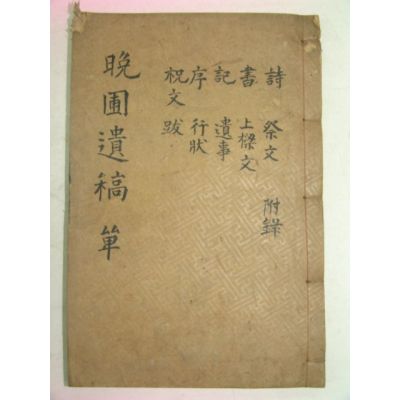 晩圃遺稿 單
詩 祭文 附録
書 上樑文
記 遺事
序 行狀
祝文 跋